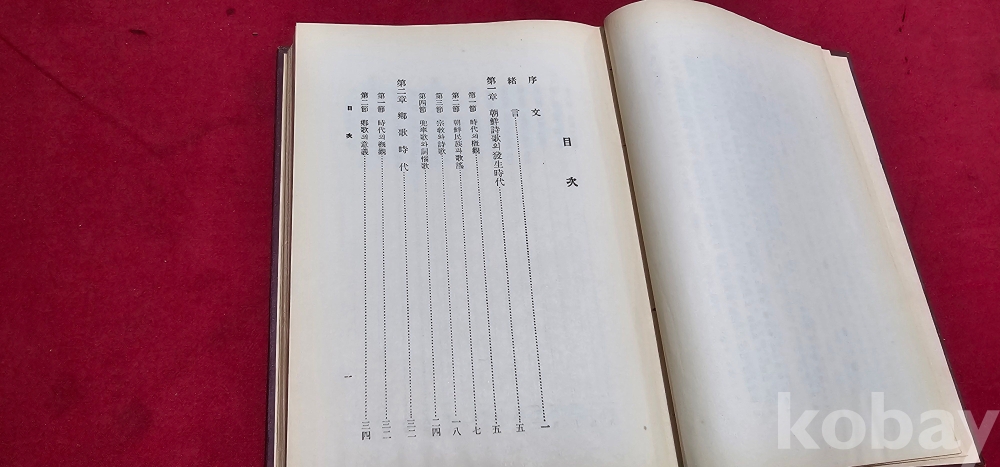 目次
序文……一
緒言……五
第一章 朝鮮詩歌의發生時代……五
第一節 時代의槪觀……七
第二節 朝鮮民族과歌謠……一八
第三節 宗敎와詩歌……二四
第四節 兜率歌와詞惱歌
第二章 鄕歌時代……三二
第一節 時代의槪觀……三二
第二節 鄕歌의意義……三四
目次
一
kobay